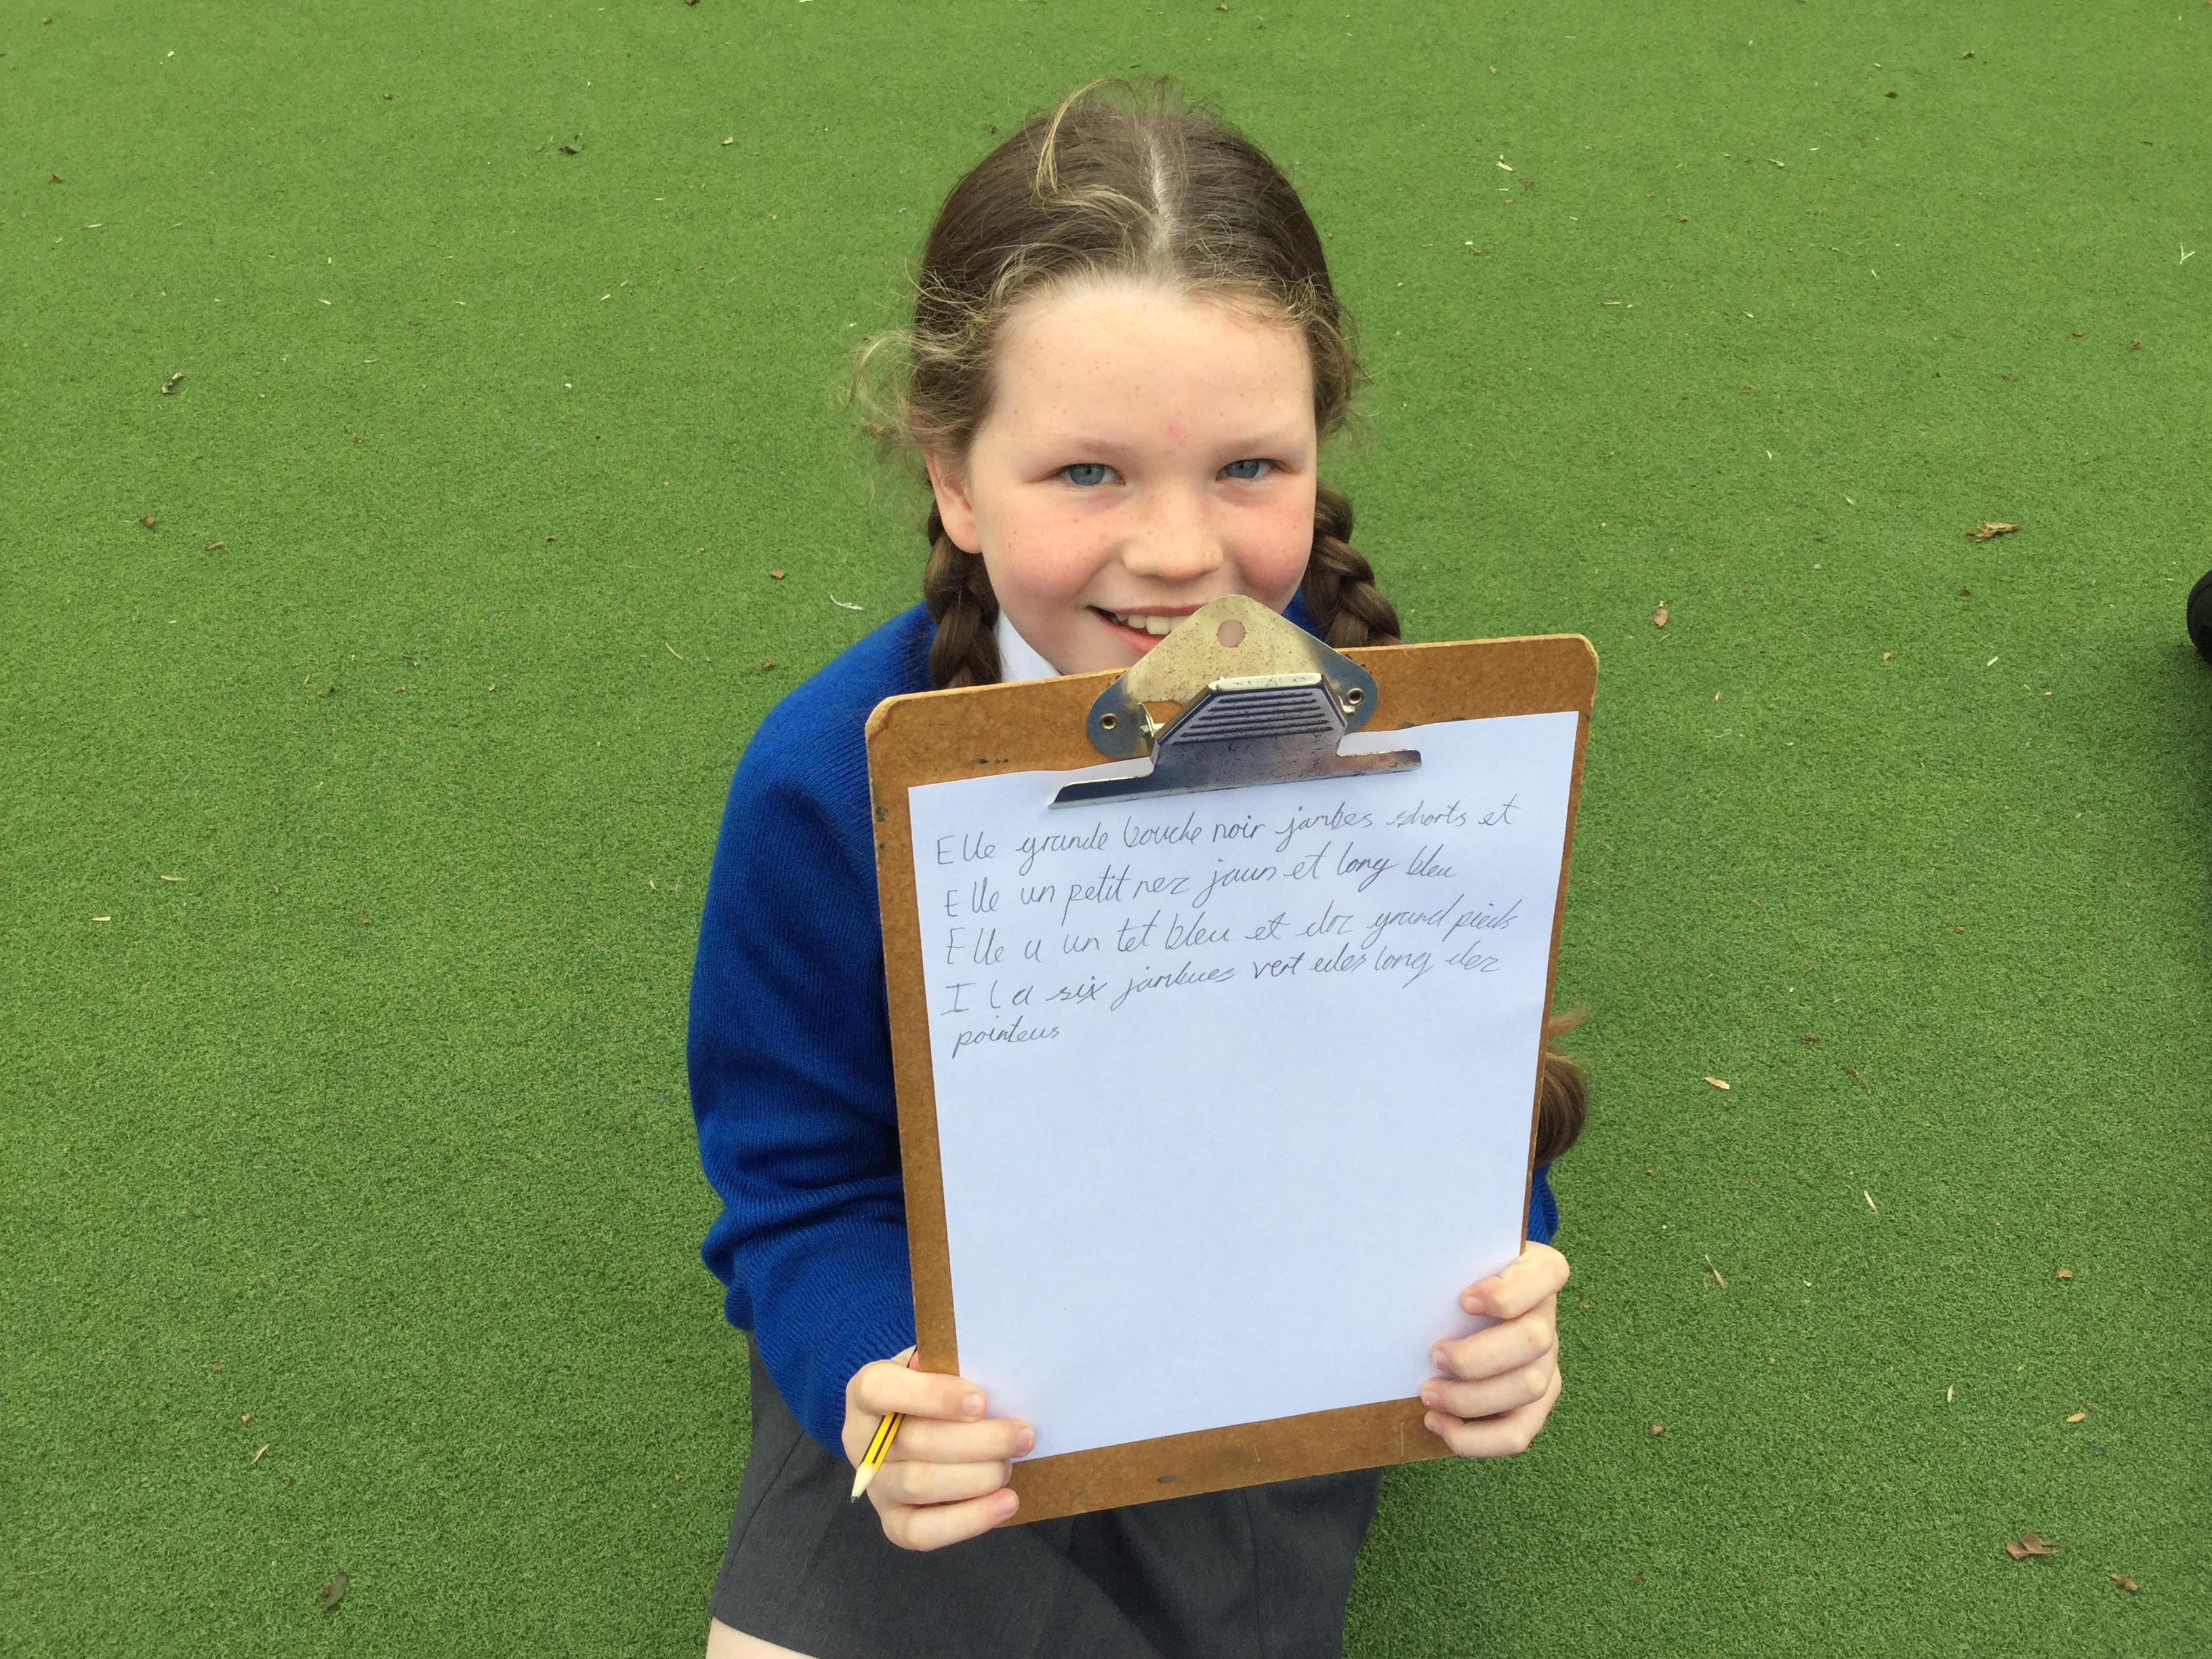 Elle grande bouche noir jambes shorts et
Elle un petit nez jaun et long bleu
Elle a un tet bleu et grand pieds
Il a six jambues vert long dez
pointeus